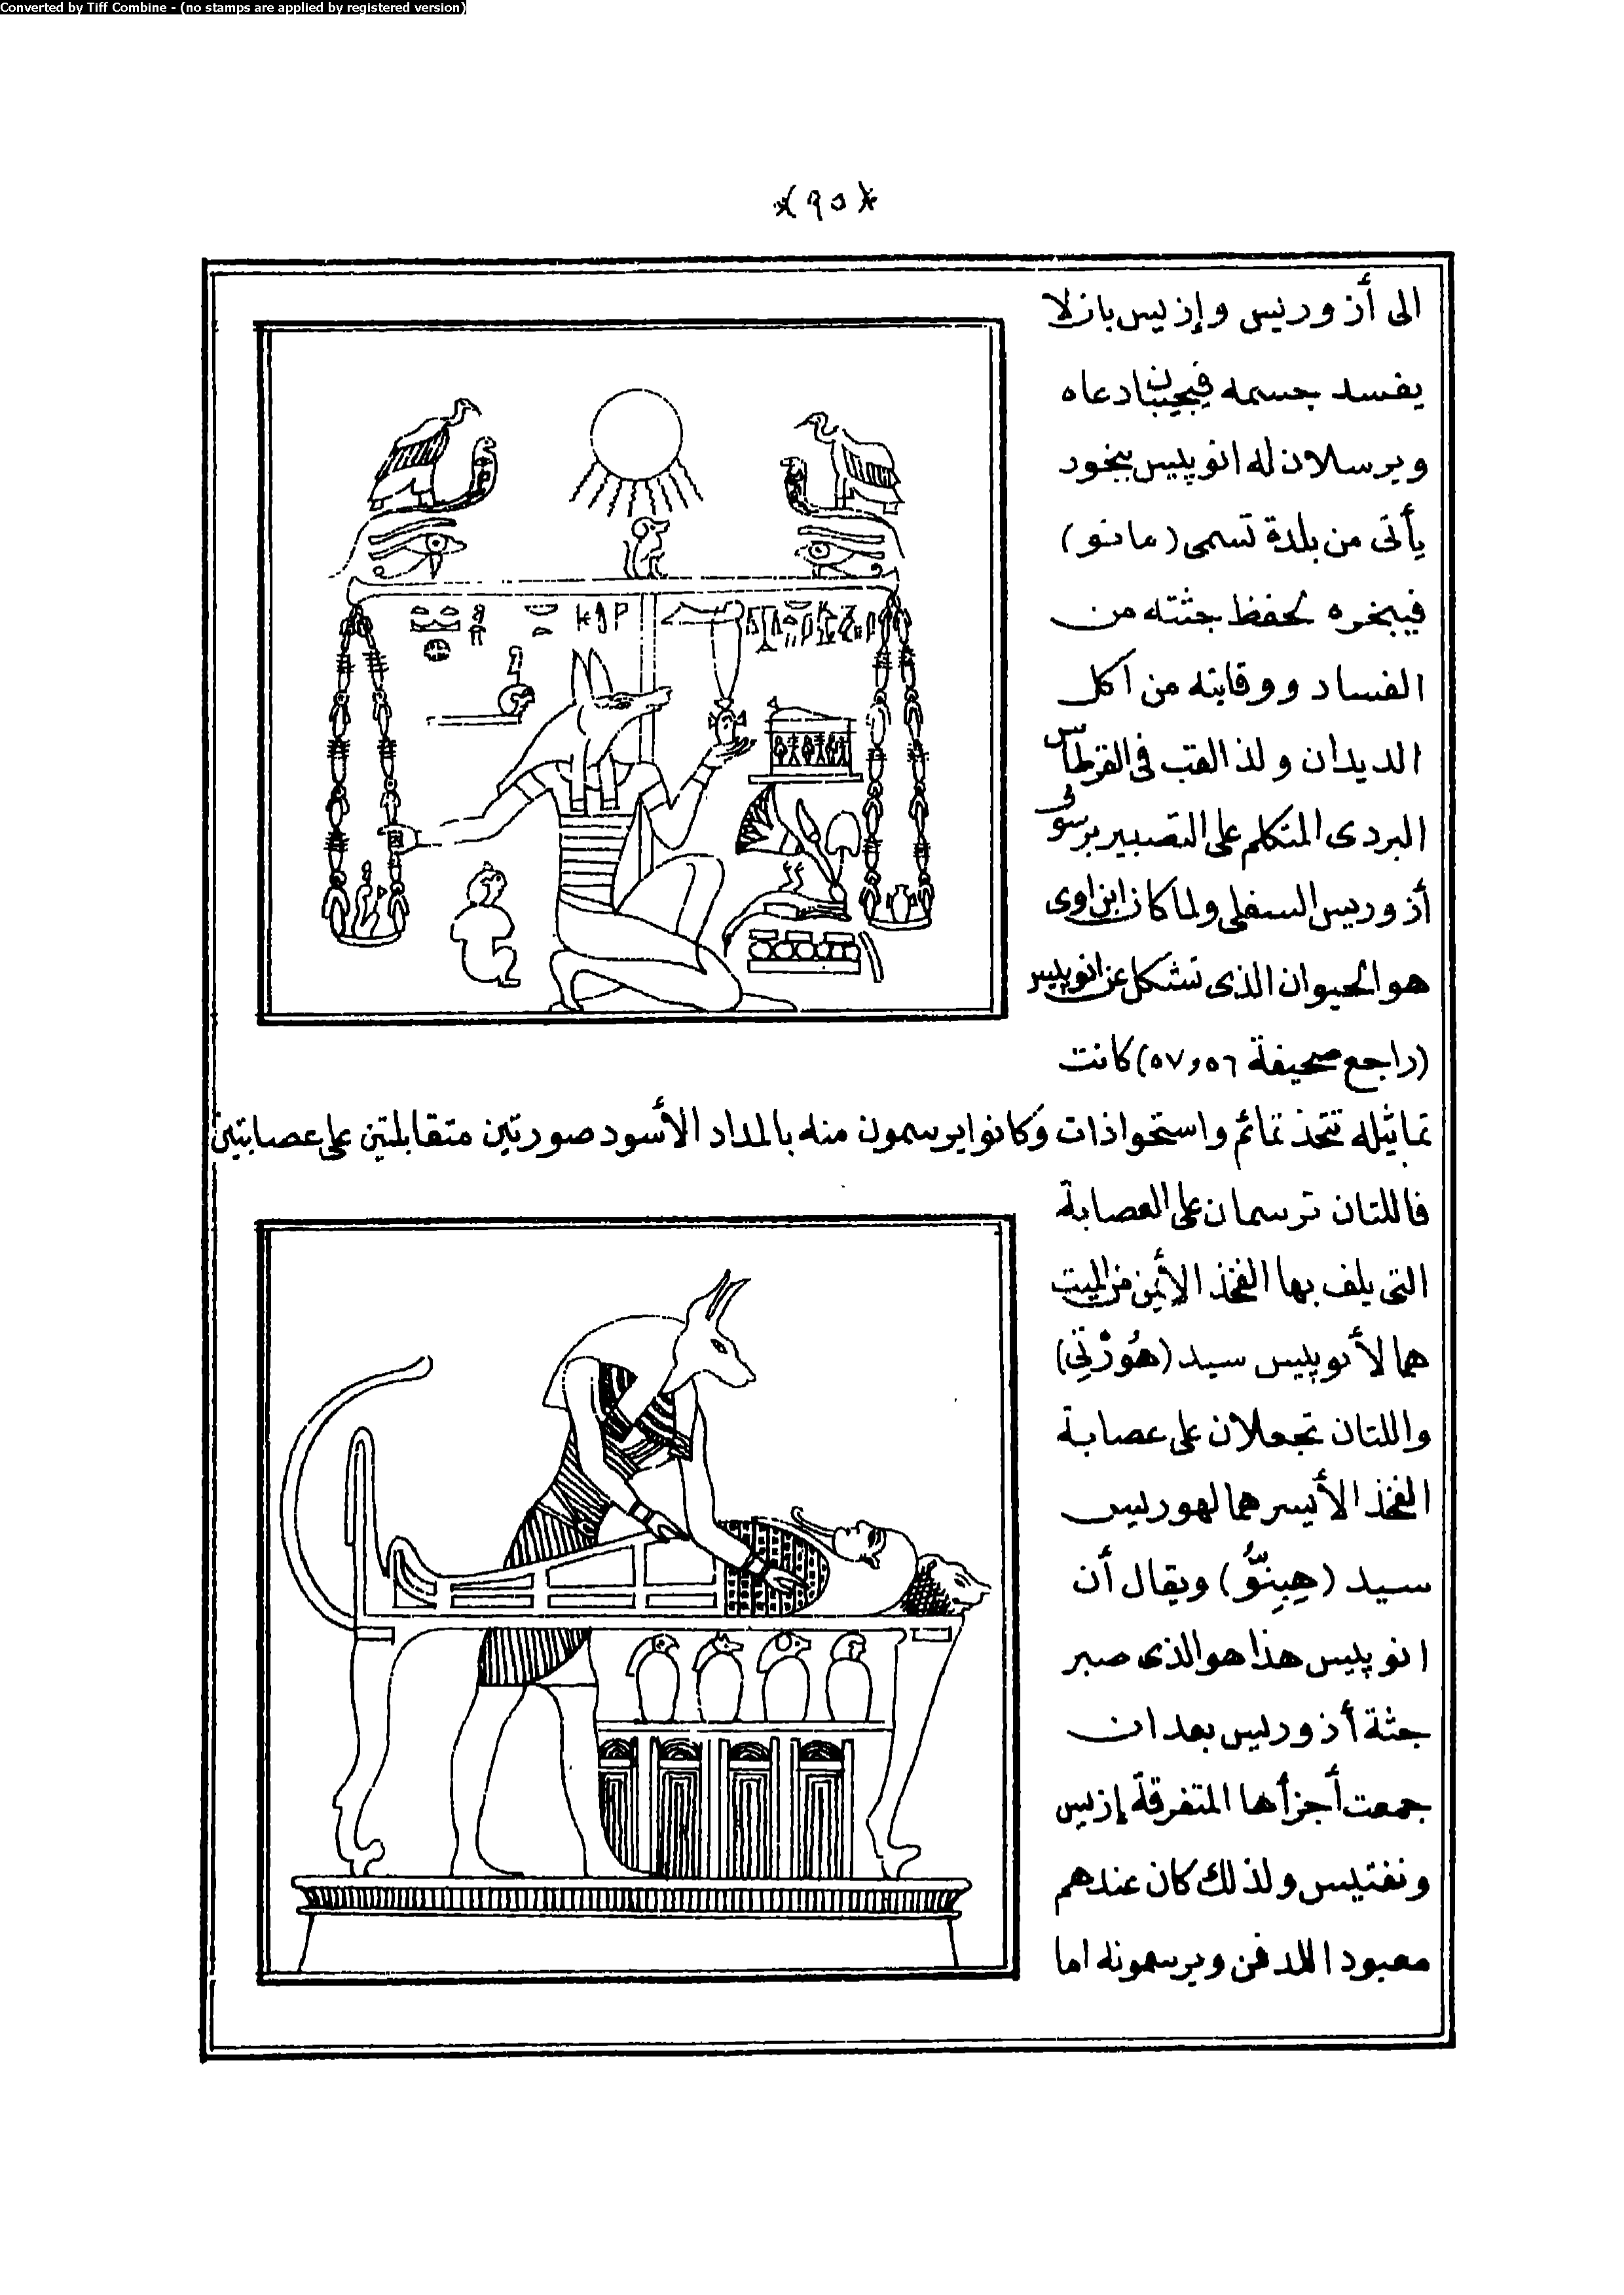 Converted by Tiff Combine - (no stamps are applied by registered version)
*(٩٥)*
الى أزوريس وإزيس بان لا
يفسد جسمه فيجيبان دعاه
ويرسلان له انوپيس ببخور
يأتى من بلدة تسمى (مانو)
فيبخره لحفظ جثته من
الفساد ووقايته من اكل
الديدان ولذا لقب فى القرطاس
البردى المتكلم على التصبير برسول
أزوريس السفلى ولما كان ابن اوى
هو الحيوان الذى تشكل عن انوپيس
(راجع صحيفة ٥٦ و٥٧) كانت
تماثيله تتخذ تمائم واستحواذات وكانوا يرسمون منه بالمداد الأسود صورتين متقابلتين على عصابتين
فاللتان ترسمان على العصابة
التى يلف بها الفخذ الأيمن من الميت
هما لأنوپيس سيد (هُوزْنِى)
واللتان تجعلان على عصابة
الفخذ الأيسر هما لهوريس
سيد (هِبِنُّو) ويقال أن
انوپيس هذا هو الذى صبر
جثة أزوريس بعد ان
جمعت أجزأها المتفرقة إزيس
ونفتيس ولذلك كان عندهم
معبودا للدفن ويرسمونه اما